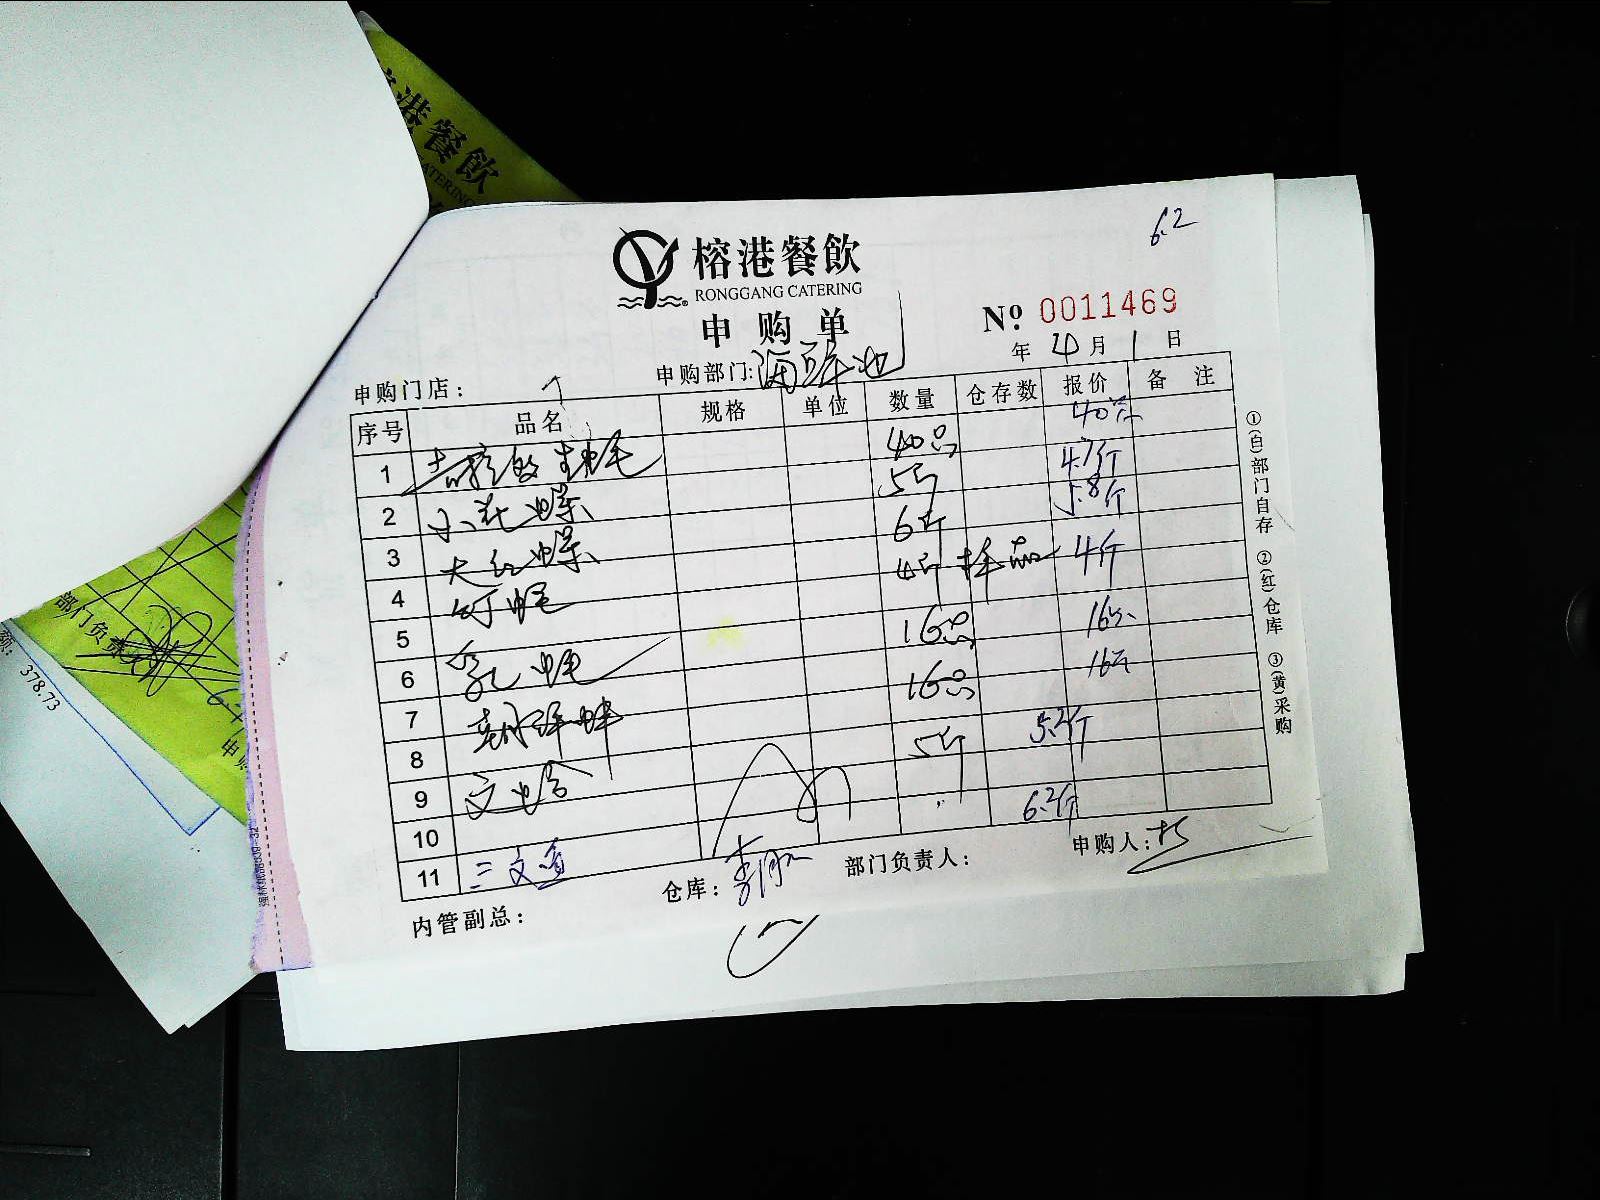 港餐飲
CATERING
6.2
榕港餐飲
RONGGANG CATERING
申购单
Nº 0011469
年 4 月 1 日
申购门店：
申购部门：海鲜池
序号 品名 规格 单位 数量 仓存数 报价 备注
1 吉拉多生蚝 40只 40只
2 小花螺 5斤 4.7斤
3 大红螺 6斤 5.8斤
4 4斤 4斤
5
6 乳蚝 16只 16只
7 16只 16只
8
9 文蛤 5斤 5.2斤
10
11 三文鱼 6.2斤
内管副总：
仓库：
部门负责人：
申购人：
①(白)部门自存 ②(红)仓库 ③(黄)采购
部门负责人
378.73